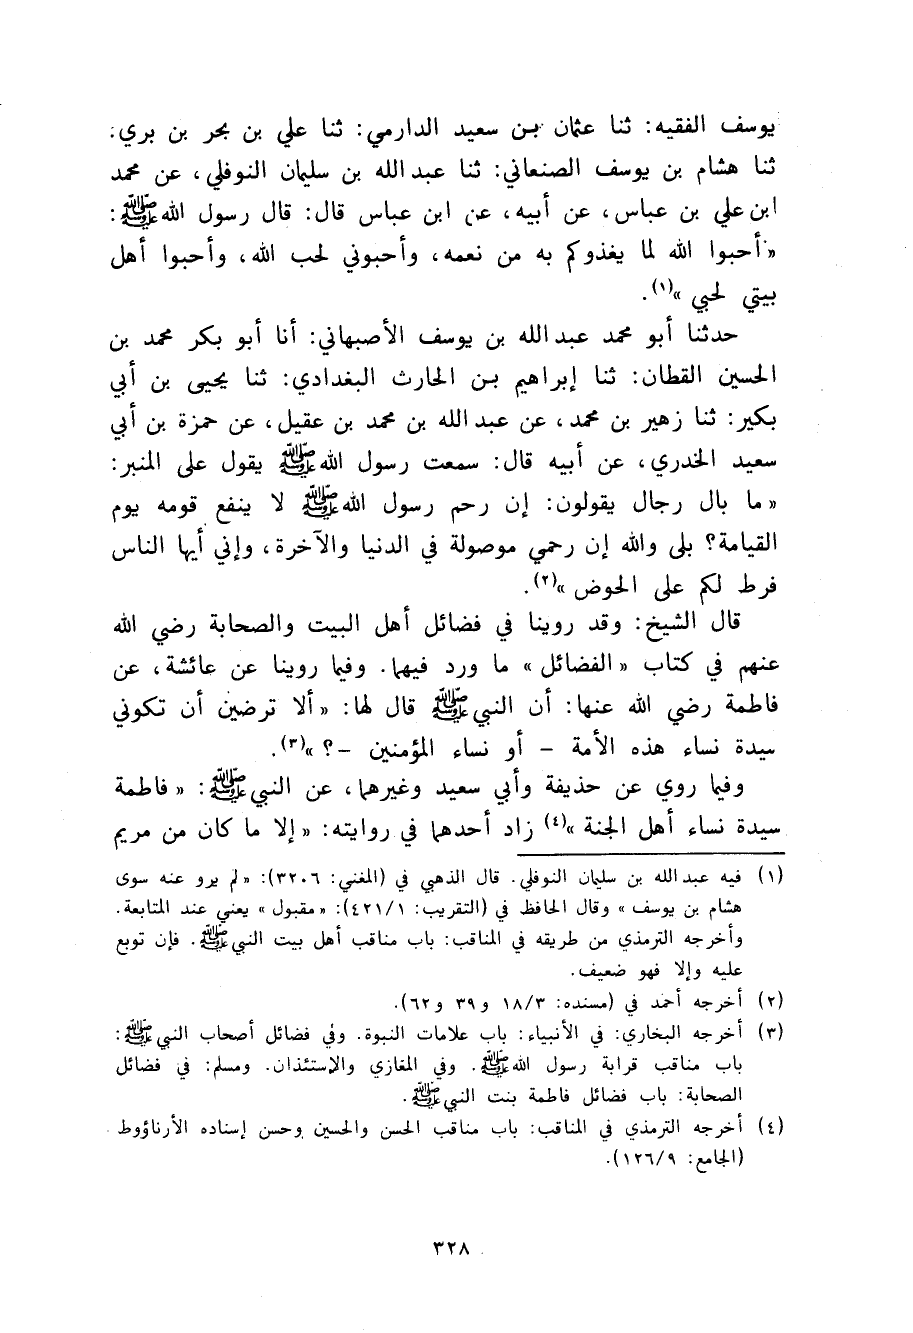 يوسف الفقيه: ثنا عثمان بن سعيد الدارمي: ثنا علي بن بحر بن بري:
ثنا هشام بن يوسف الصنعاني: ثنا عبد الله بن سليمان النوفلي، عن محمد
ابن علي بن عباس، عن أبيه، عن ابن عباس قال: قال رسول الله ﷺ:
«أحبوا الله لما يغذوكم به من نعمه، وأحبوني لحب الله، وأحبوا أهل
بيتي لحبي»(١).
حدثنا أبو محمد عبد الله بن يوسف الأصبهاني: أنا أبو بكر محمد بن
الحسين القطان: ثنا إبراهيم بن الحارث البغدادي: ثنا يحيى بن أبي
بكير: ثنا زهير بن محمد، عن عبد الله بن محمد بن عقيل، عن حمزة بن أبي
سعيد الخدري، عن أبيه قال: سمعت رسول الله ﷺ يقول على المنبر:
«ما بال رجال يقولون: إن رحم رسول الله ﷺ لا ينفع قومه يوم
القيامة؟ بلى والله إن رحمي موصولة في الدنيا والآخرة، وإني أيها الناس
فرط لكم على الحوض»(٢).
قال الشيخ: وقد روينا في فضائل أهل البيت والصحابة رضي الله
عنهم في كتاب «الفضائل» ما ورد فيهما. وفيما روينا عن عائشة، عن
فاطمة رضي الله عنها: أن النبي ﷺ قال لها: «ألا ترضين أن تكوني
سيدة نساء هذه الأمة - أو نساء المؤمنين -؟»(٣).
وفيما روي عن حذيفة وأبي سعيد وغيرهما، عن النبي ﷺ: «فاطمة
سيدة نساء أهل الجنة»(٤) زاد أحدهما في روايته: «إلا ما كان من مريم
(١) فيه عبد الله بن سليمان النوفلي. قال الذهبي في (المغني: ٣٢٠٦): «لم يرو عنه سوى
هشام بن يوسف» وقال الحافظ في (التقريب: ٤٢١/١): «مقبول» يعني عند المتابعة.
وأخرجه الترمذي من طريقه في المناقب: باب مناقب أهل بيت النبي ﷺ. فإن توبع
عليه وإلا فهو ضعيف.
(٢) أخرجه أحمد في (مسنده: ١٨/٣ و٣٩ و٦٢).
(٣) أخرجه البخاري: في الأنبياء: باب علامات النبوة. وفي فضائل أصحاب النبي ﷺ:
باب مناقب قرابة رسول الله ﷺ. وفي المغازي والإستئذان. ومسلم: في فضائل
الصحابة: باب فضائل فاطمة بنت النبي ﷺ.
(٤) أخرجه الترمذي في المناقب: باب مناقب الحسن والحسين وحسن إسناده الأرناؤوط
(الجامع: ١٢٦/٩).
٣٢٨